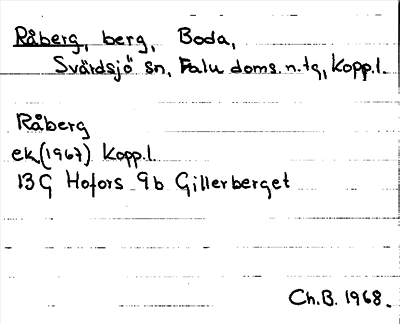 Råberg, berg, Boda,
Svärdsjö sn, Falu doms. n. tg, Kopp. l.
Råberg
ek (1967) Kopp. l.
13 G Hofors 9b Gillerberget
Ch. B. 1968.